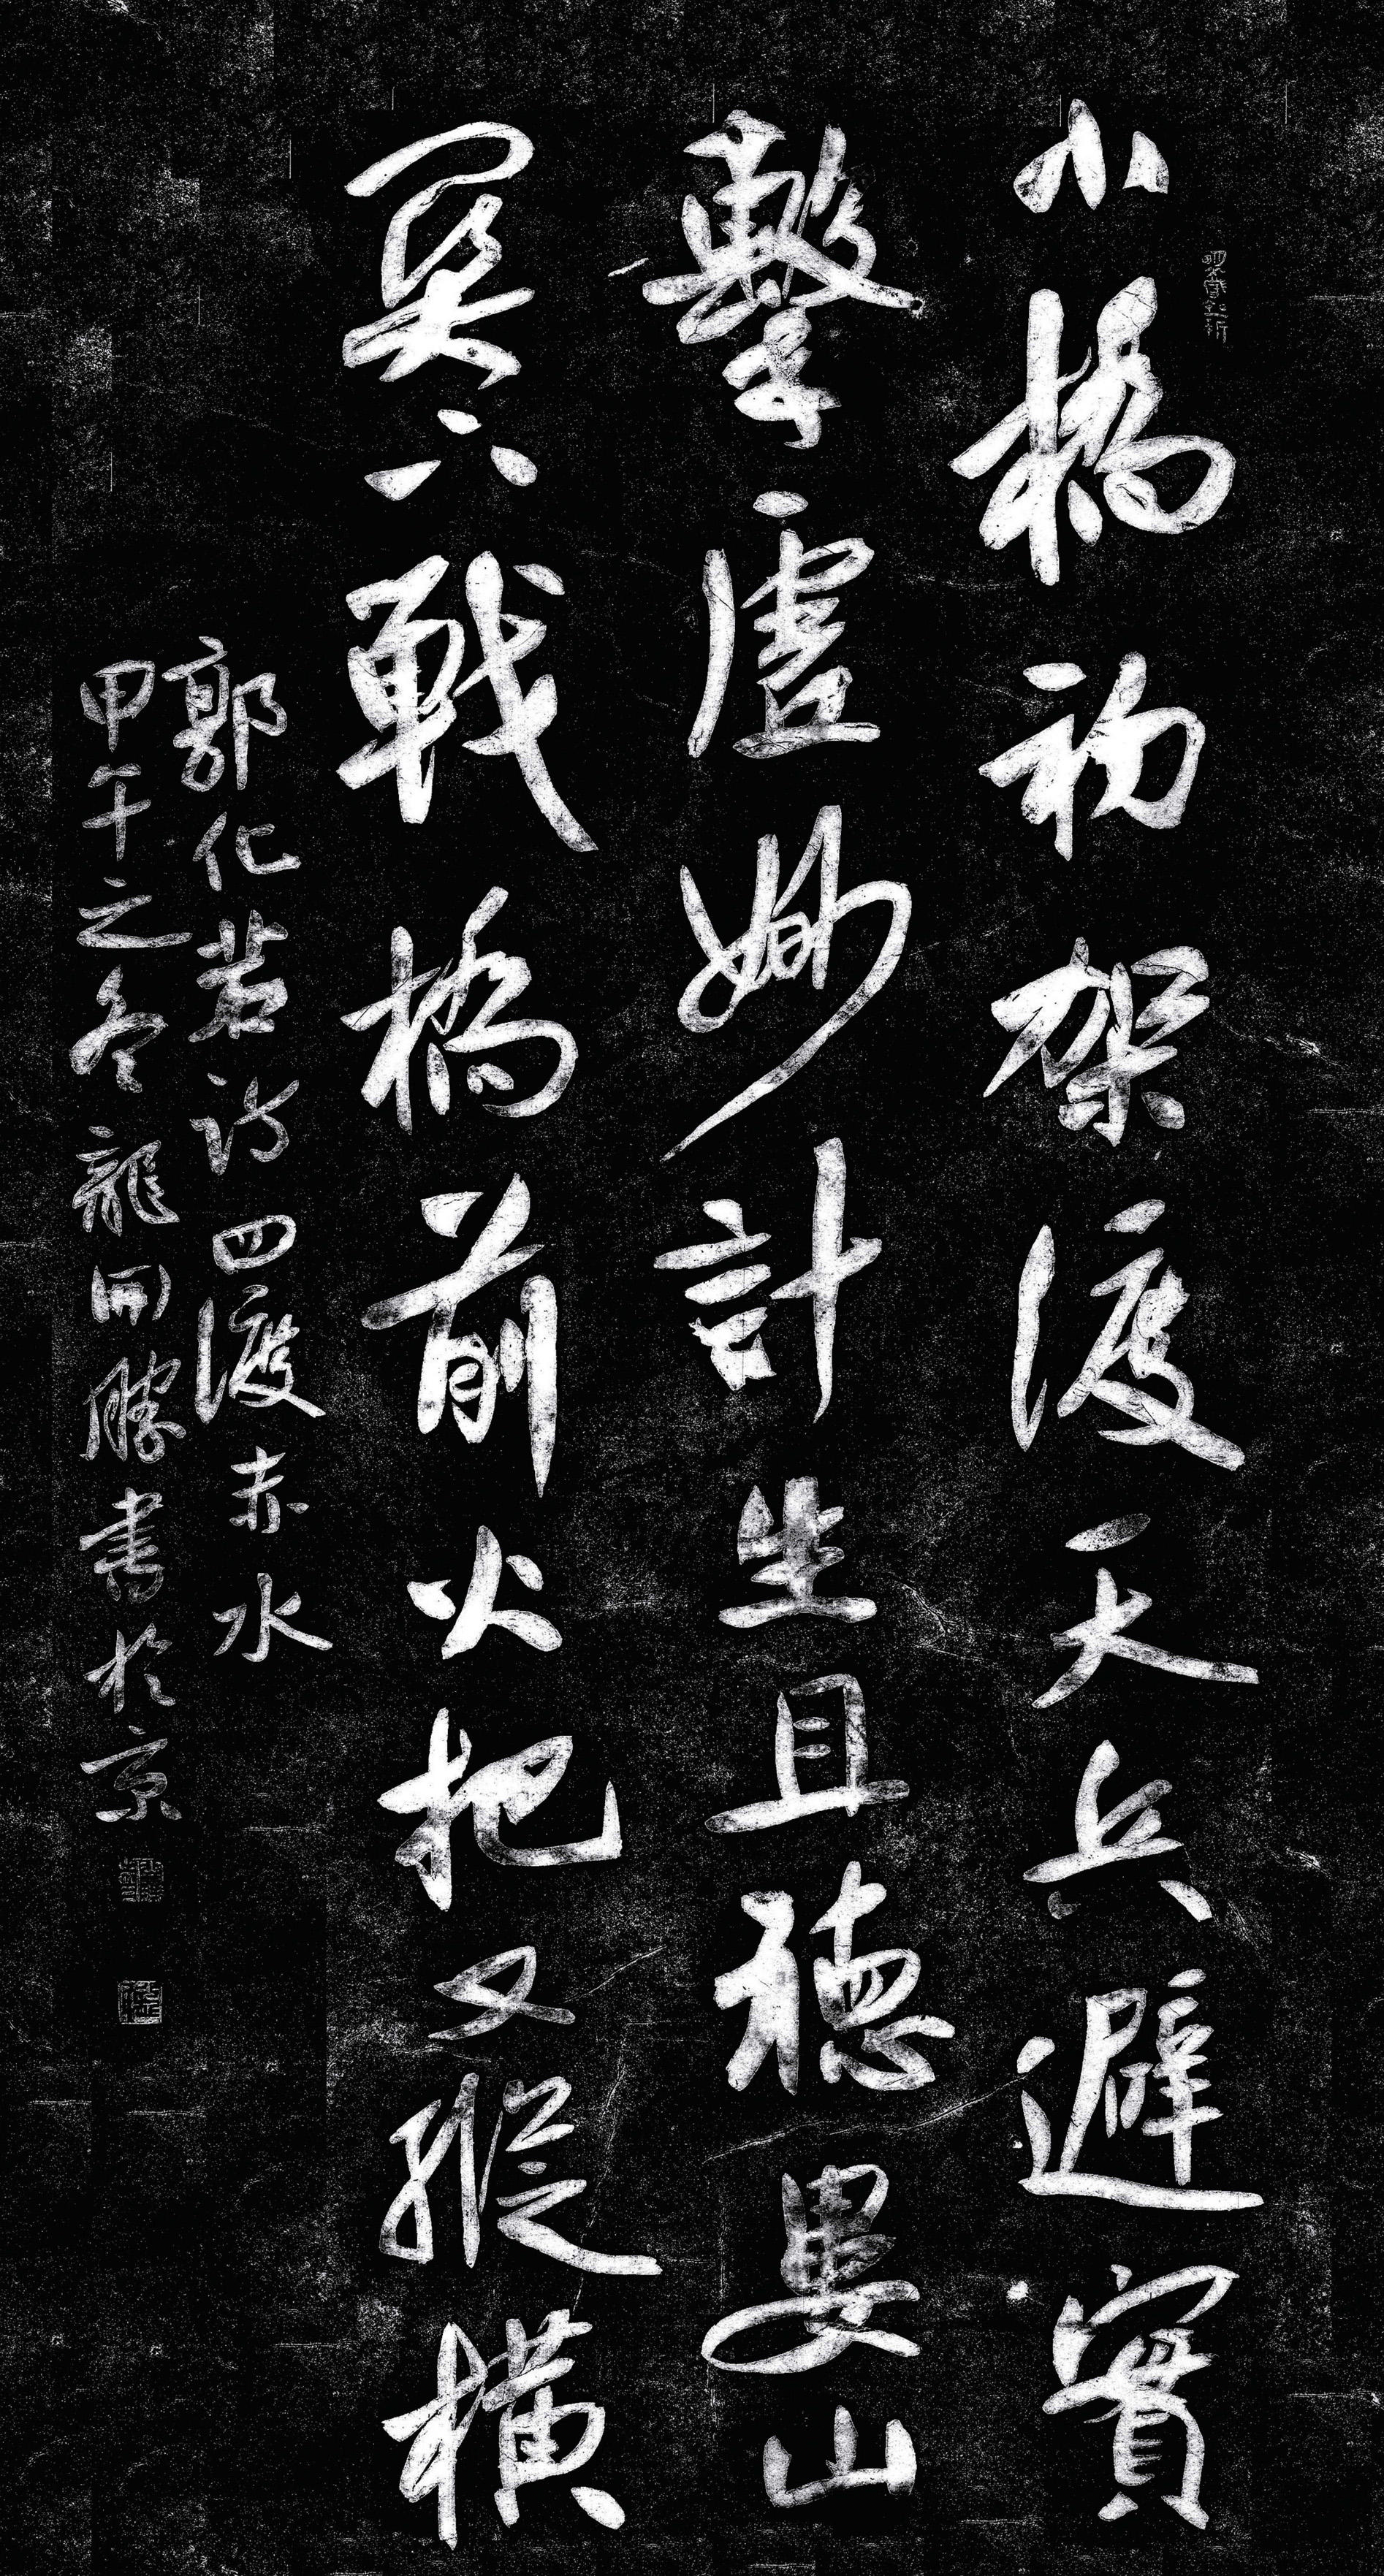 小橋初架渡天兵避實
擊虛妙計生且聽婁山
関下戰橋前火把又縱橫
郭化若詩四渡赤水
甲午之冬龍開勝書於京